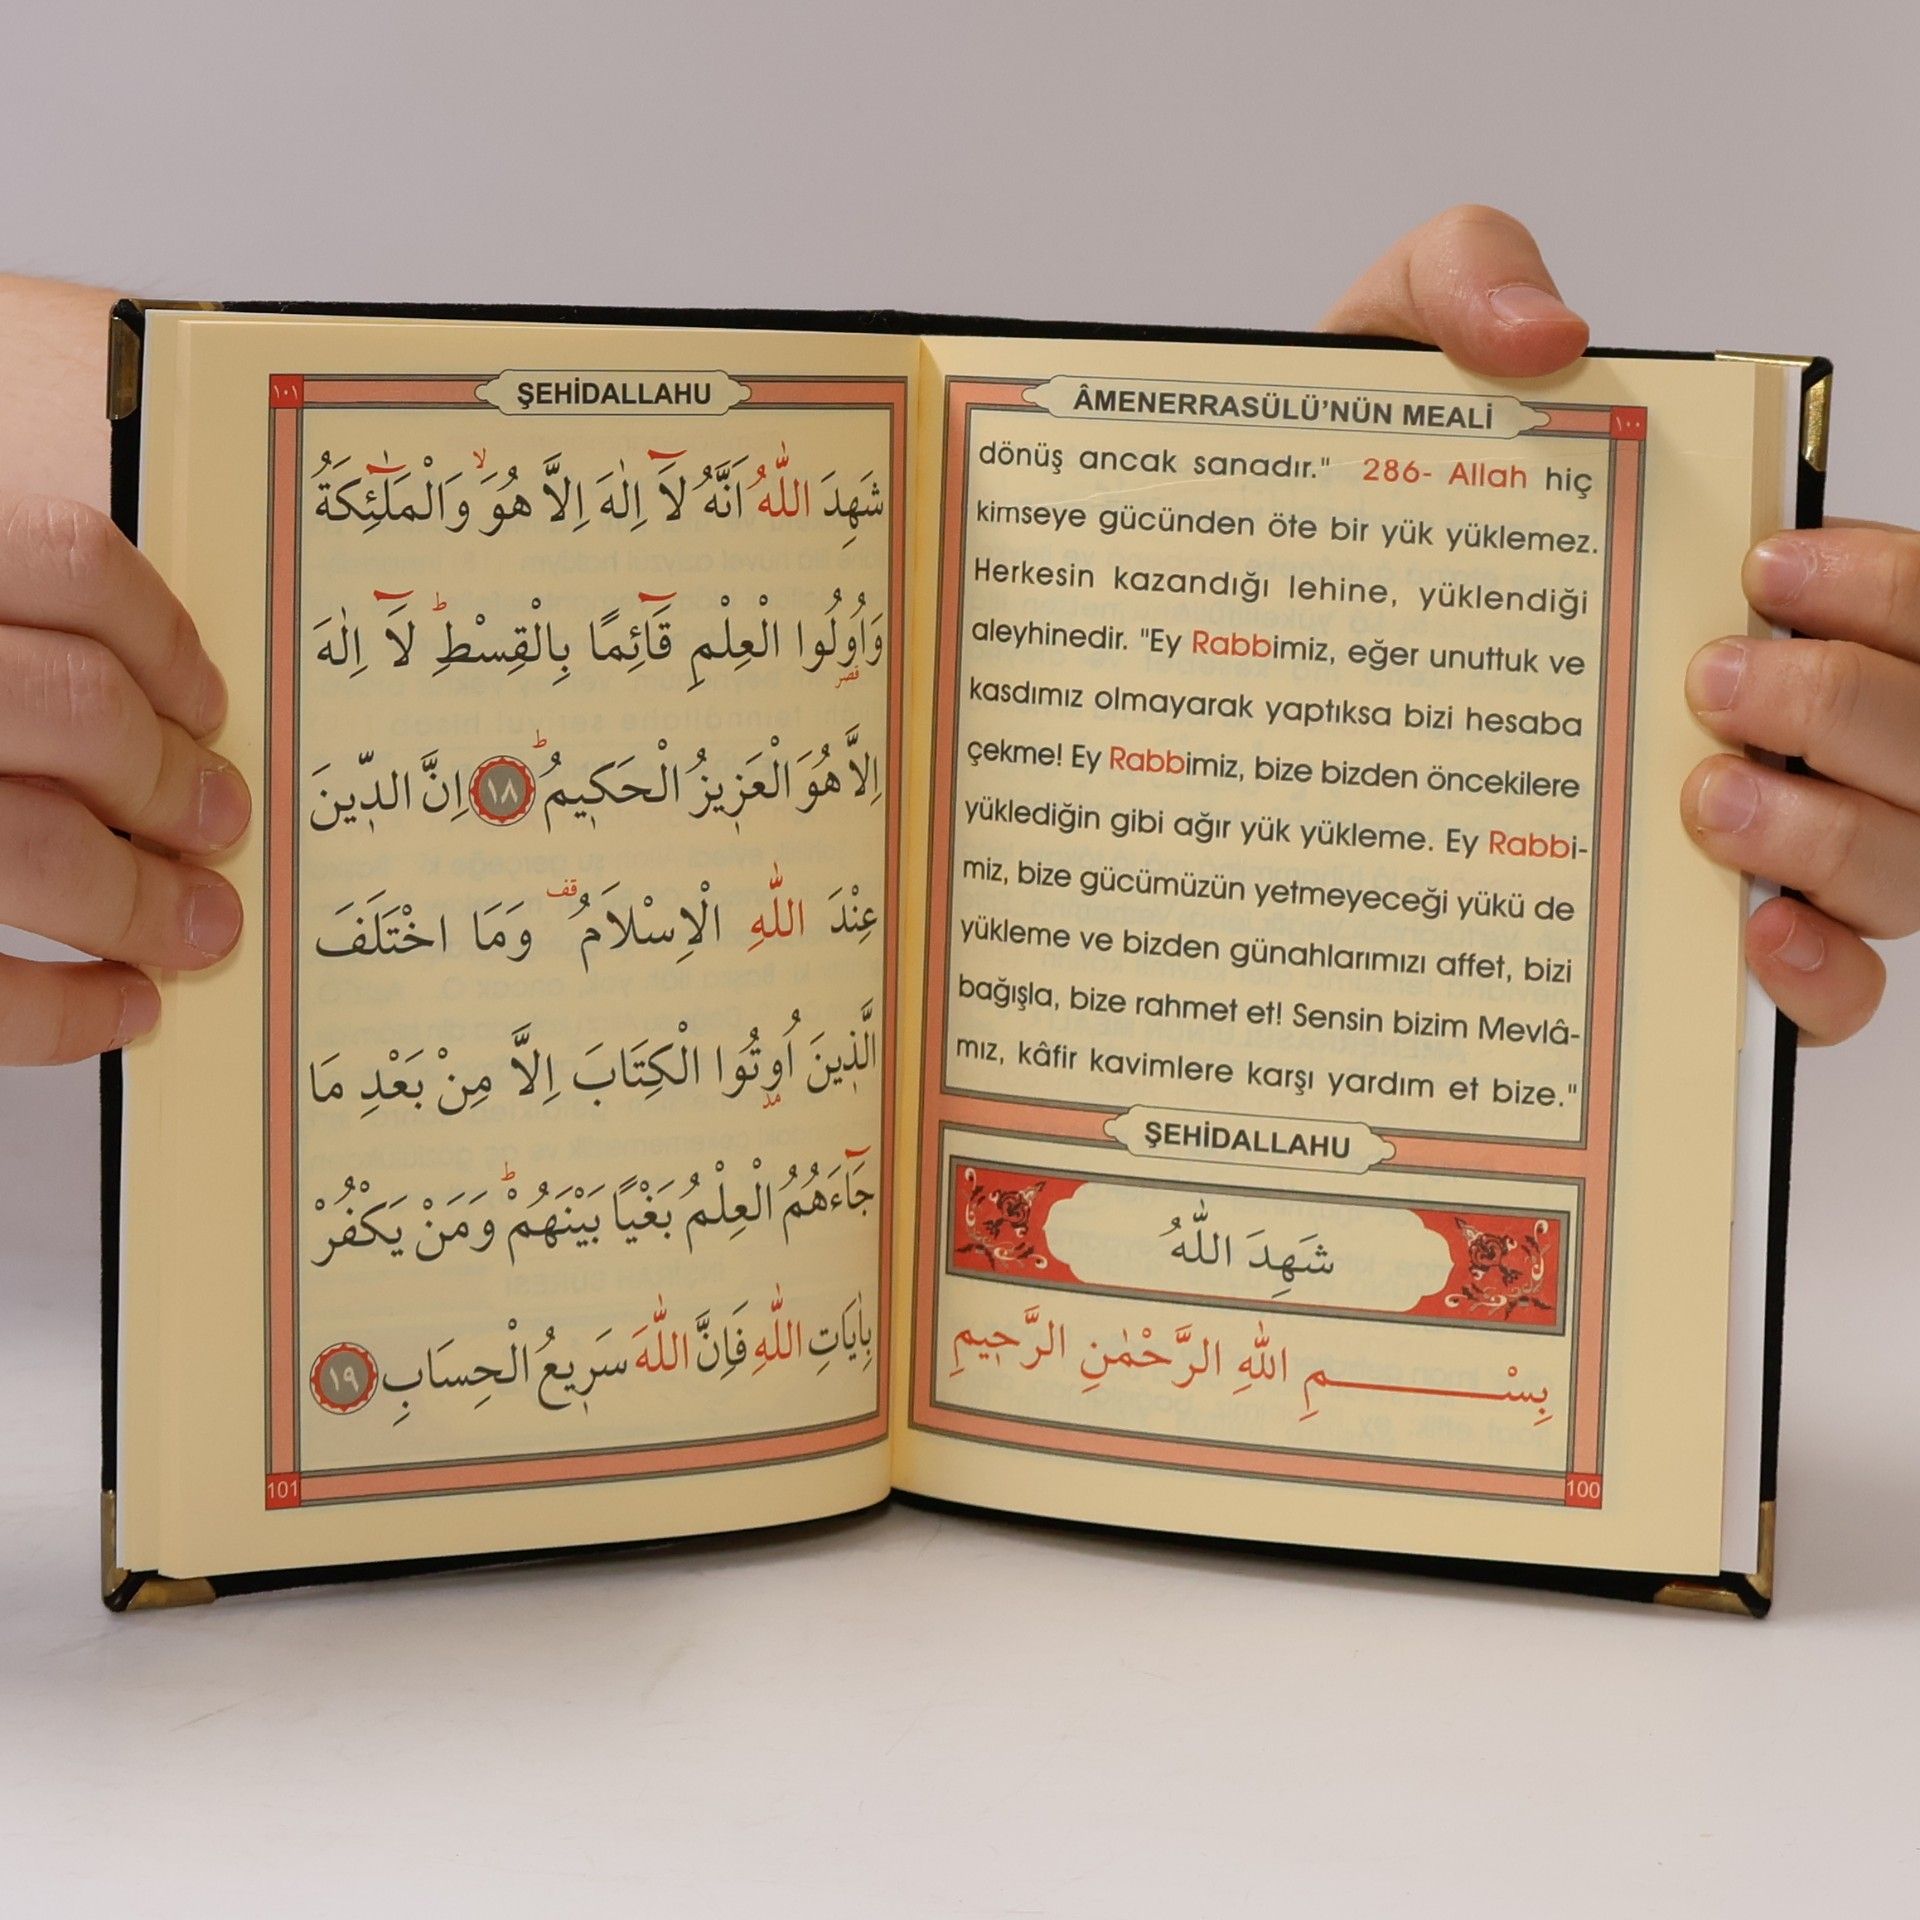 ÂMENERRASÜLÜ'NÜN MEALİ
١٠٠
dönüş ancak sanadır." 286- Allah hiç
kimseye gücünden öte bir yük yüklemez.
Herkesin kazandığı lehine, yüklendiği
aleyhinedir. "Ey Rabbimiz, eğer unuttuk ve
kasdımız olmayarak yaptıksa bizi hesaba
çekme! Ey Rabbimiz, bize bizden öncekilere
yüklediğin gibi ağır yük yükleme. Ey Rabbi-
miz, bize gücümüzün yetmeyeceği yükü de
yükleme ve bizden günahlarımızı affet, bizi
bağışla, bize rahmet et! Sensin bizim Mevlâ-
mız, kâfir kavimlere karşı yardım et bize."
ŞEHİDALLAHU
شَهِدَ اللّٰهُ
بِسْــــــــمِ اللّٰهِ الرَّحْمٰنِ الرَّح۪يمِ
100
١٠١
ŞEHİDALLAHU
شَهِدَ اللّٰهُ اَنَّهُ لَٓا اِلٰهَ اِلَّا هُوَۙ وَالْمَلٰٓئِكَةُ
وَاُو۬لُوا الْعِلْمِ قَٓائِمًا بِالْقِسْطِۜ لَٓا اِلٰهَ
قصر
اِلَّا هُوَ الْعَز۪يزُ الْحَك۪يمُۜ ١٨ اِنَّ الدّ۪ينَ
عِنْدَ اللّٰهِ الْاِسْلَامُ قف وَمَا اخْتَلَفَ
الَّذ۪ينَ اُو۫تُوا الْكِتَابَ اِلَّا مِنْ بَعْدِ مَا
مد
جَٓاءَهُمُ الْعِلْمُ بَغْيًا بَيْنَهُمْۜ وَمَنْ يَكْفُرْ
بِاٰيَاتِ اللّٰهِ فَاِنَّ اللّٰهَ سَر۪يعُ الْحِسَابِ ١٩
101